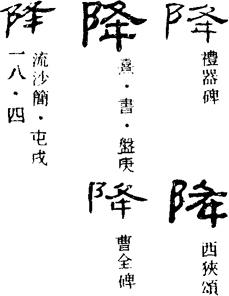 降
禮器碑
降
西狹頌
降
熹・書・盤庚
降
曹全碑
降
流沙簡・屯戍
一八・四